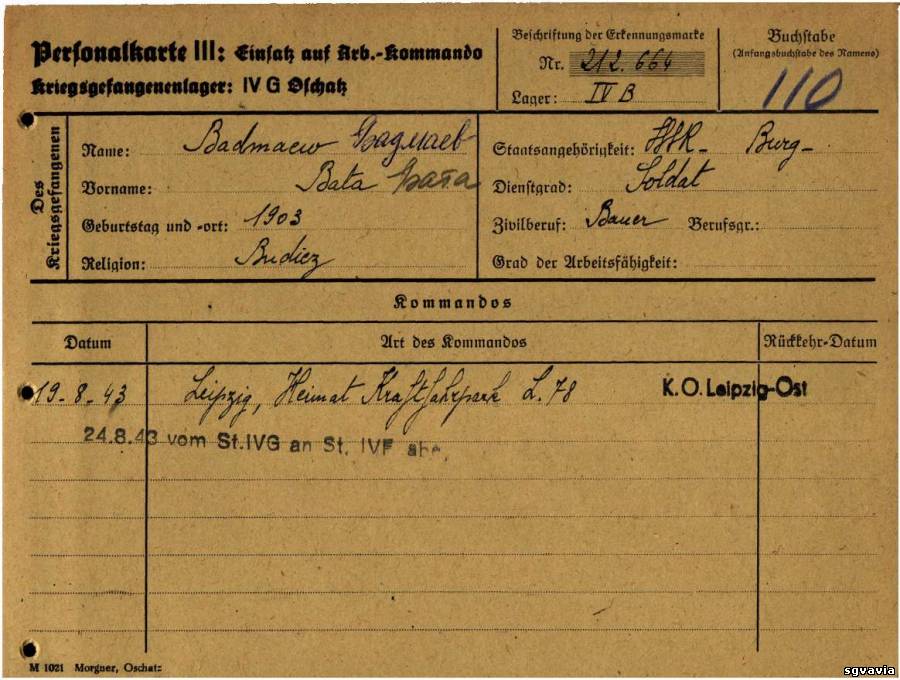 Personalkarte III: Einsatz auf Arb.-Kommando
Kriegsgefangenenlager: IV G Oschatz
Beschriftung der Erkennungsmarke
Nr. 212.664
Lager: IV B
Buchstabe
(Anfangsbuchstabe des Namens)
110
Des Kriegsgefangenen
Name: Badmaew Бадмаев
Vorname: Bata Бата
Geburtstag und -ort: 1903
Religion:
Staatsangehörigkeit:
Dienstgrad: Soldat
Zivilberuf: Bauer Berufsgr.:
Grad der Arbeitsfähigkeit:
Kommandos
Datum Art des Kommandos Rückkehr-Datum
19-8-43 Leipzig, Heimat Kraftfahrpark L. 78 K.O. Leipzig-Ost
24.8.43 vom St.IVG an St. IVF
M 1021 Morgner, Oschatz
sgvavia